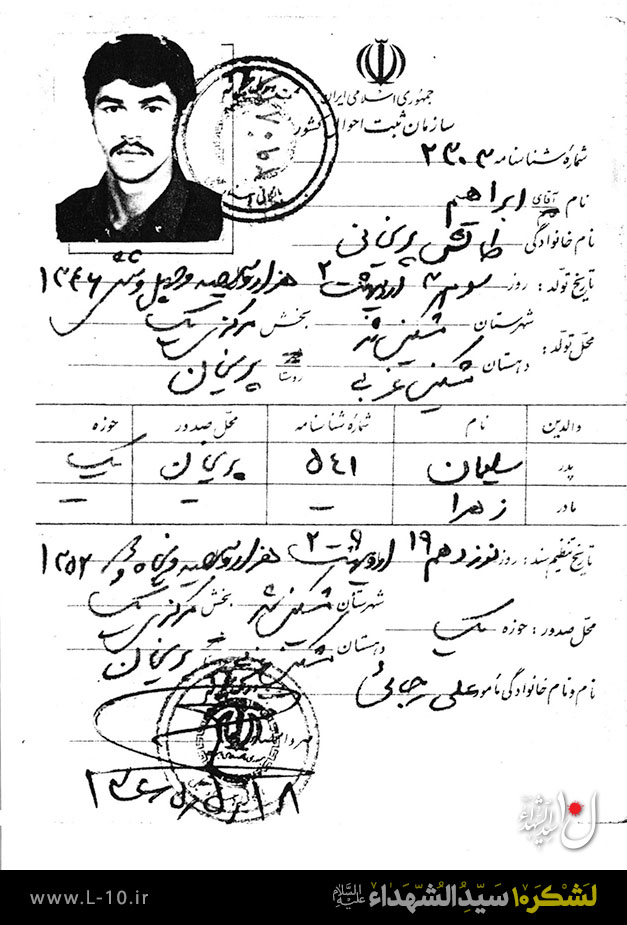 جمهوری اسلامی ایران
سازمان ثبت احوال کشور
شماره شناسنامه ۲۳۰۳
نام آقای ابراهیم
نام خانوادگی طاقتی پریخانی
تاریخ تولد: روز سوم ۳ اردیبهشت ۲ هزار و سیصد و چهل و شش ۱۳۴۶
محل تولد: شهرستان مشکین شهر بخش مرکزی یک
دهستان مشکین غربی روستا پریخان
والدین نام شماره شناسنامه محل صدور حوزه
پدر سلیمان ۵۴۱ پریخان یک
مادر زهرا – – –
تاریخ تنظیم سند: روز نوزدهم ۱۹ اردیبهشت ۲ هزار و سیصد و پنجاه و ۱۳۵۲
محل صدور: حوزه یک شهرستان مشکین شهر بخش مرکزی یک
دهستان مشکین غربی پریخان
نام و نام خانوادگی مأمور علی رجائی
مهر و امضاء
لشکر۱۰ سیدالشهداء
www.L-10.ir
لَشکَرِ۱۰ سَیِّدِالشُّهَداء عَلَیهِ السَّلام